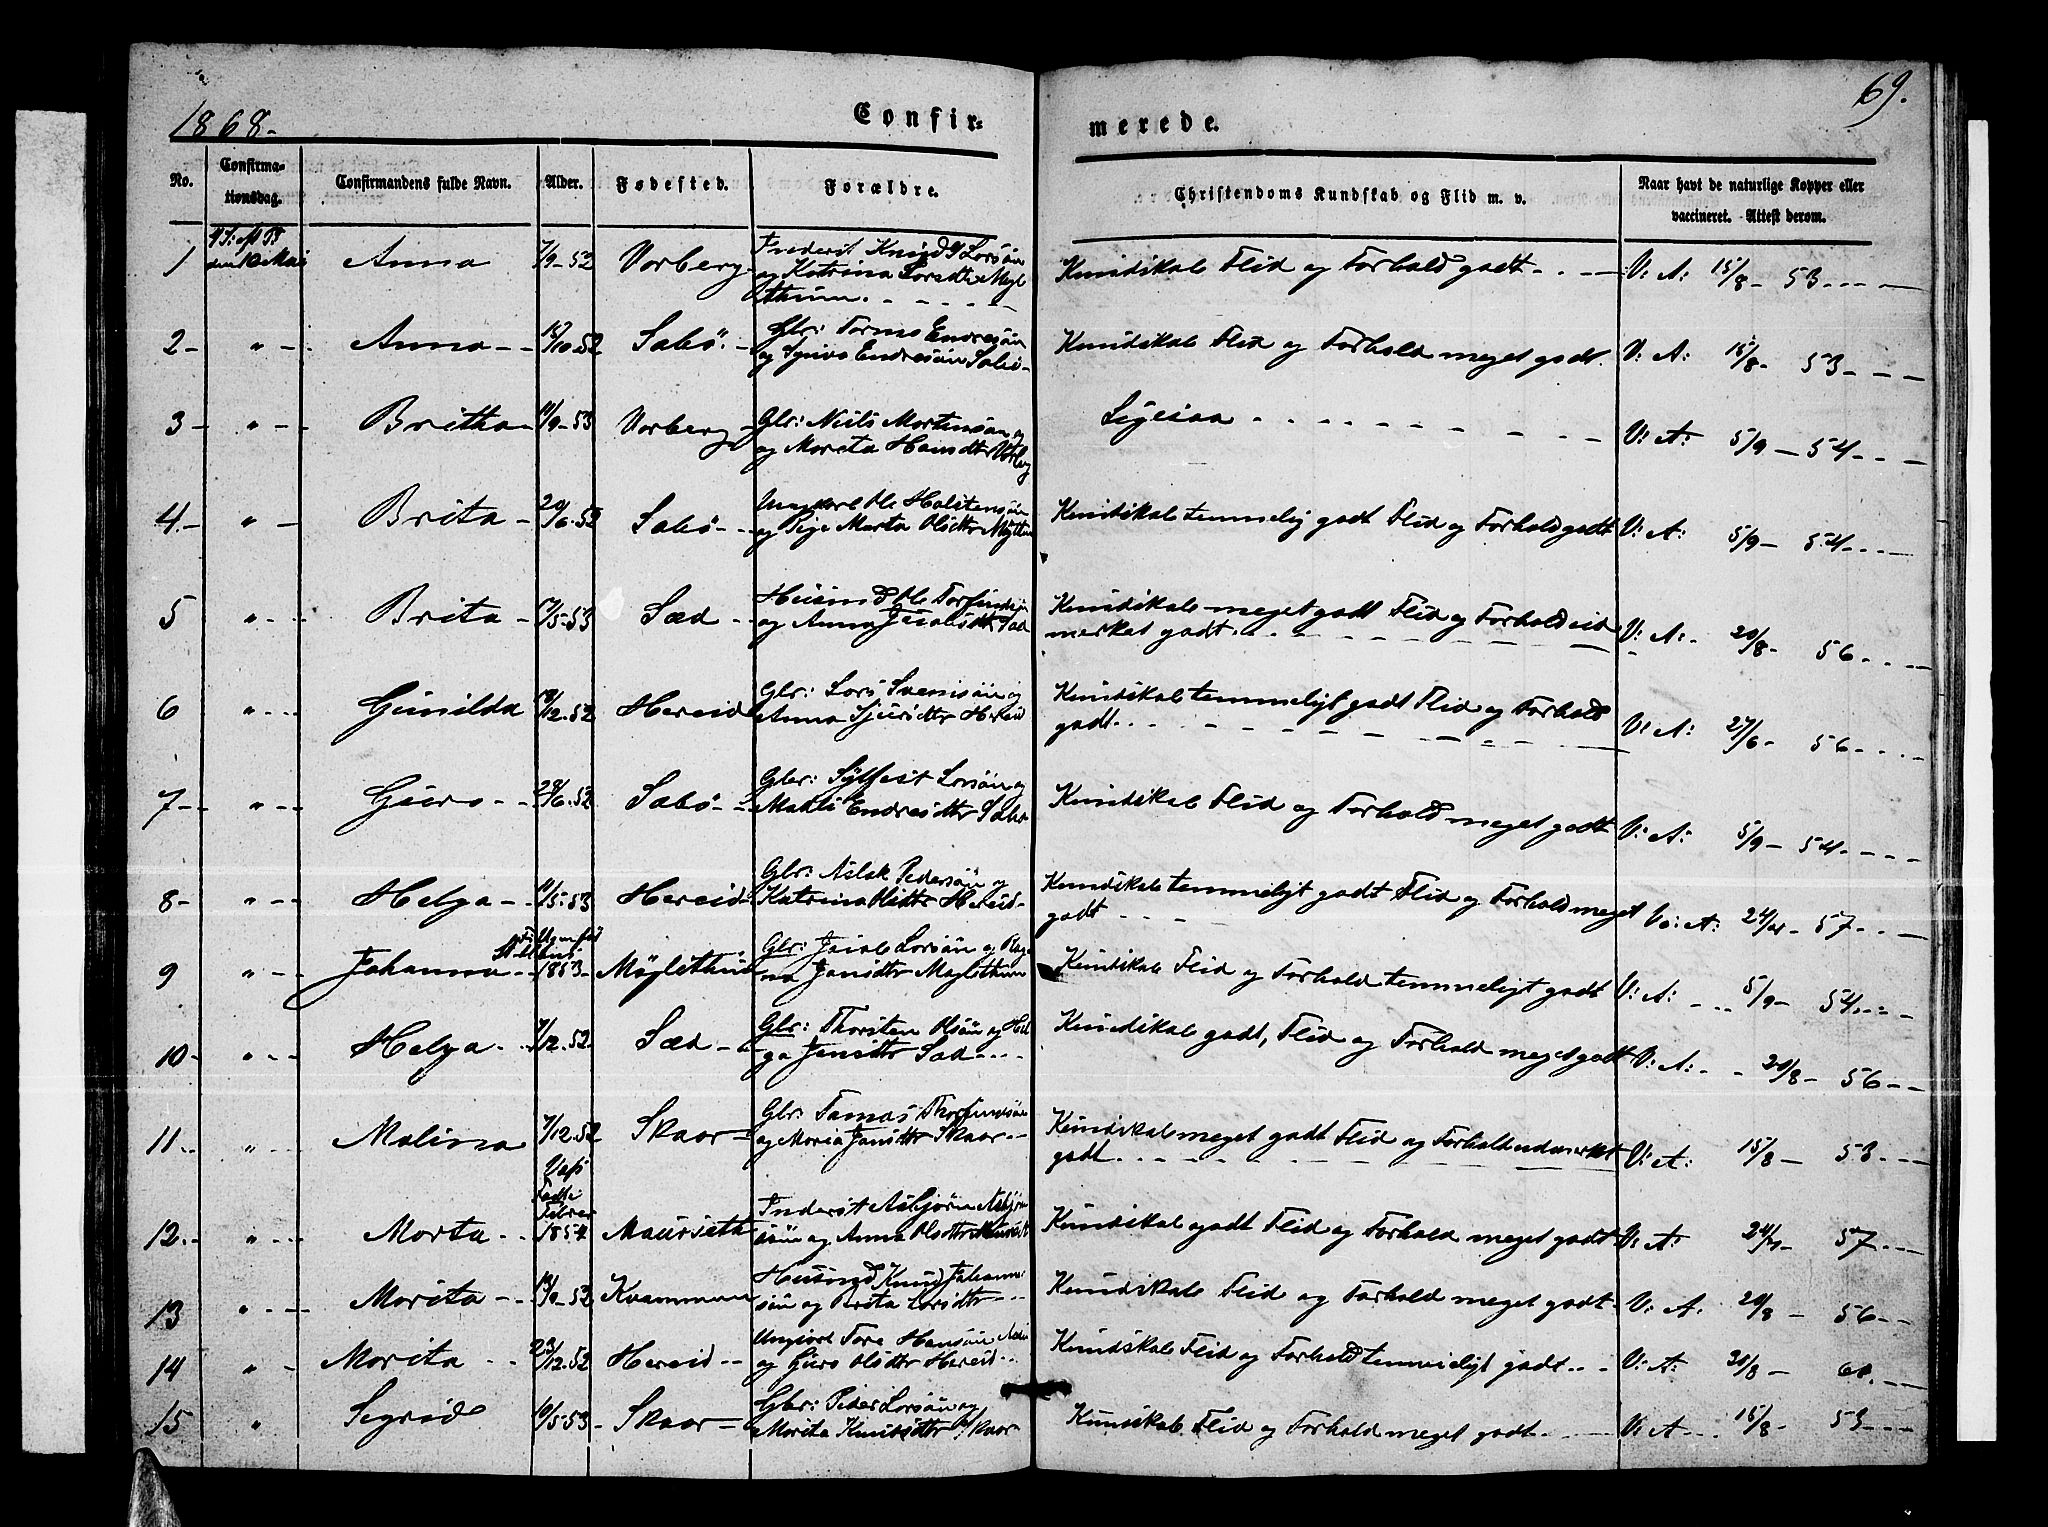 1868.
Confir=
merede.
69.
No.
Confirma-
tionsdag.
Confirmandens fulde Navn.
Alder.
Fødested.
Forældre.
Christendoms Kundskab og Flid m. v.
Naar havt de naturlige Kopper eller
vaccineret. Attest derom.
1 4 S: eft P
den 10 Mai Anna 7/9-52 Vorberg Knud Larsön
og Katrina Larsdtr Mögle-
thun
Kundskab Flid og Forhold godt V: A: 15/8 - 53
2 " Anna 10-52 Sabö Gbr: Endresön
og Endresdtr Sabö
Kundskab Flid og Forhold meget godt. V: A: 15/8 - 53
3 " Britha 11/9-53 Vorberg Gbr: Niels Mortensön og
og Marita Hansdtr Vorberg
Ligesaa V: A: 5/9 - 54
4 " Brita 6-52 Sabö Ungkarl Ole Halstensön
og Pige Marta Olsdtr Mögl
Kundskab temmelig godt Flid og Forhold godt V: A: 5/9 - 54
5 " Brita 17/5-53 Sæd Huusmd Ole Torfindsön
og Anna Jacobsdtr Sæd
Kundskab meget godt Flid og Forhold ud
merket godt V: A: 20/8 - 56
6 " Gunilda 12-52 Hereid Gbr: Lars Svenisön og
Anna Sjursdtr Hereid
Kundskab temmeligt godt Flid og Forhold
godt V: A: 27/6 - 56
7 " Guro 6-52 Sabö Gbr: Sylfest Larsön og
Endresdtr Sabö
Kundskab Flid og Forhold meget godt V: A: 5/9 - 54
8 " Helga 11/5-53 Hereid Gbr: Aslak Pedersön og
Katrina Olsdtr Hereid
Kundskab temmeligt godt Flid og Forhold meget
godt V: A: 24/ - 57
9 " Johanna 1853 Möglethun Gbr: Jacob Larsön og Rag-
na Jansdtr Maglethun
Kundskab Flid og Forhold temmeligt godt V: A: 5/9 - 54
10 " Helga 12-52 Sæd Gbr: Thorsten Olsön og Hel-
ga Jansdtr Sæd
Kundskab godt, Flid og Forhold meget godt V: A: 20/8 - 56
11 " Malina 7/12-52 Skaar Gbr: Tomas Thorfindsön
og Maria Jansdtr Skaar
Kundskab meget godt Flid og Forhold udmerket
godt V: A: 15/8 - 53
12 " Marta Febrer
1854 Maurseth Inderst Asbjörn Asbjörn
sön og Anna Olsdtr Maurset
Kundskab godt Flid og Forhold meget godt V: A: 24/ - 57
13 " Marita 9-52 Kvammen Huusmd Knud Johanne-
sön og Brita Larsdtr
Kundskab Flid og Forhold meget godt V: A: 20/8 - 56
14 " Marita 12-52 Hereid Ungkarl Tore Hansön
og Guro Olsdtr Hereid
Kundskab Flid og Forhold temmeligt godt V: A: 30/8 -
15 " Segrid 5-53 Skaar Gbr: Peder Larsön og
Marita Knudsdtr Skaar
Kundskab Flid og Forhold meget godt V: A 15/8 - 53